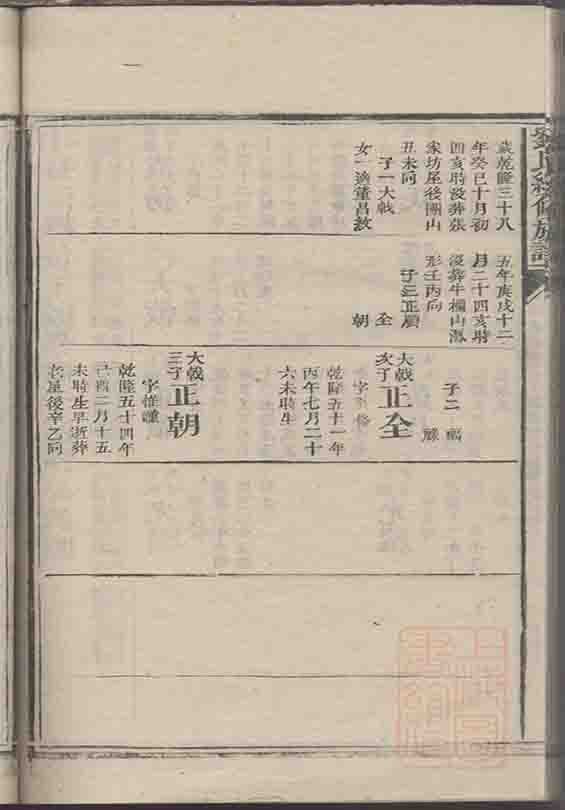 歲乾隆三十八
年癸巳十月初
四亥時沒葬張
家坊屋後團山
丑未向
子一大戟
女一適董昌敘
五年庚戌十二
月二十四亥時
沒葬牛欄山
形壬丙向
子三正
全
朝
子二
大戟
次子
正全
乾隆五十一年
丙午七月二十
六未時生
大戟
三子
正朝
字惟
乾隆五十四年
己酉二月十五
未時生早逝葬
老屋後辛乙向
劉氏續修族譜